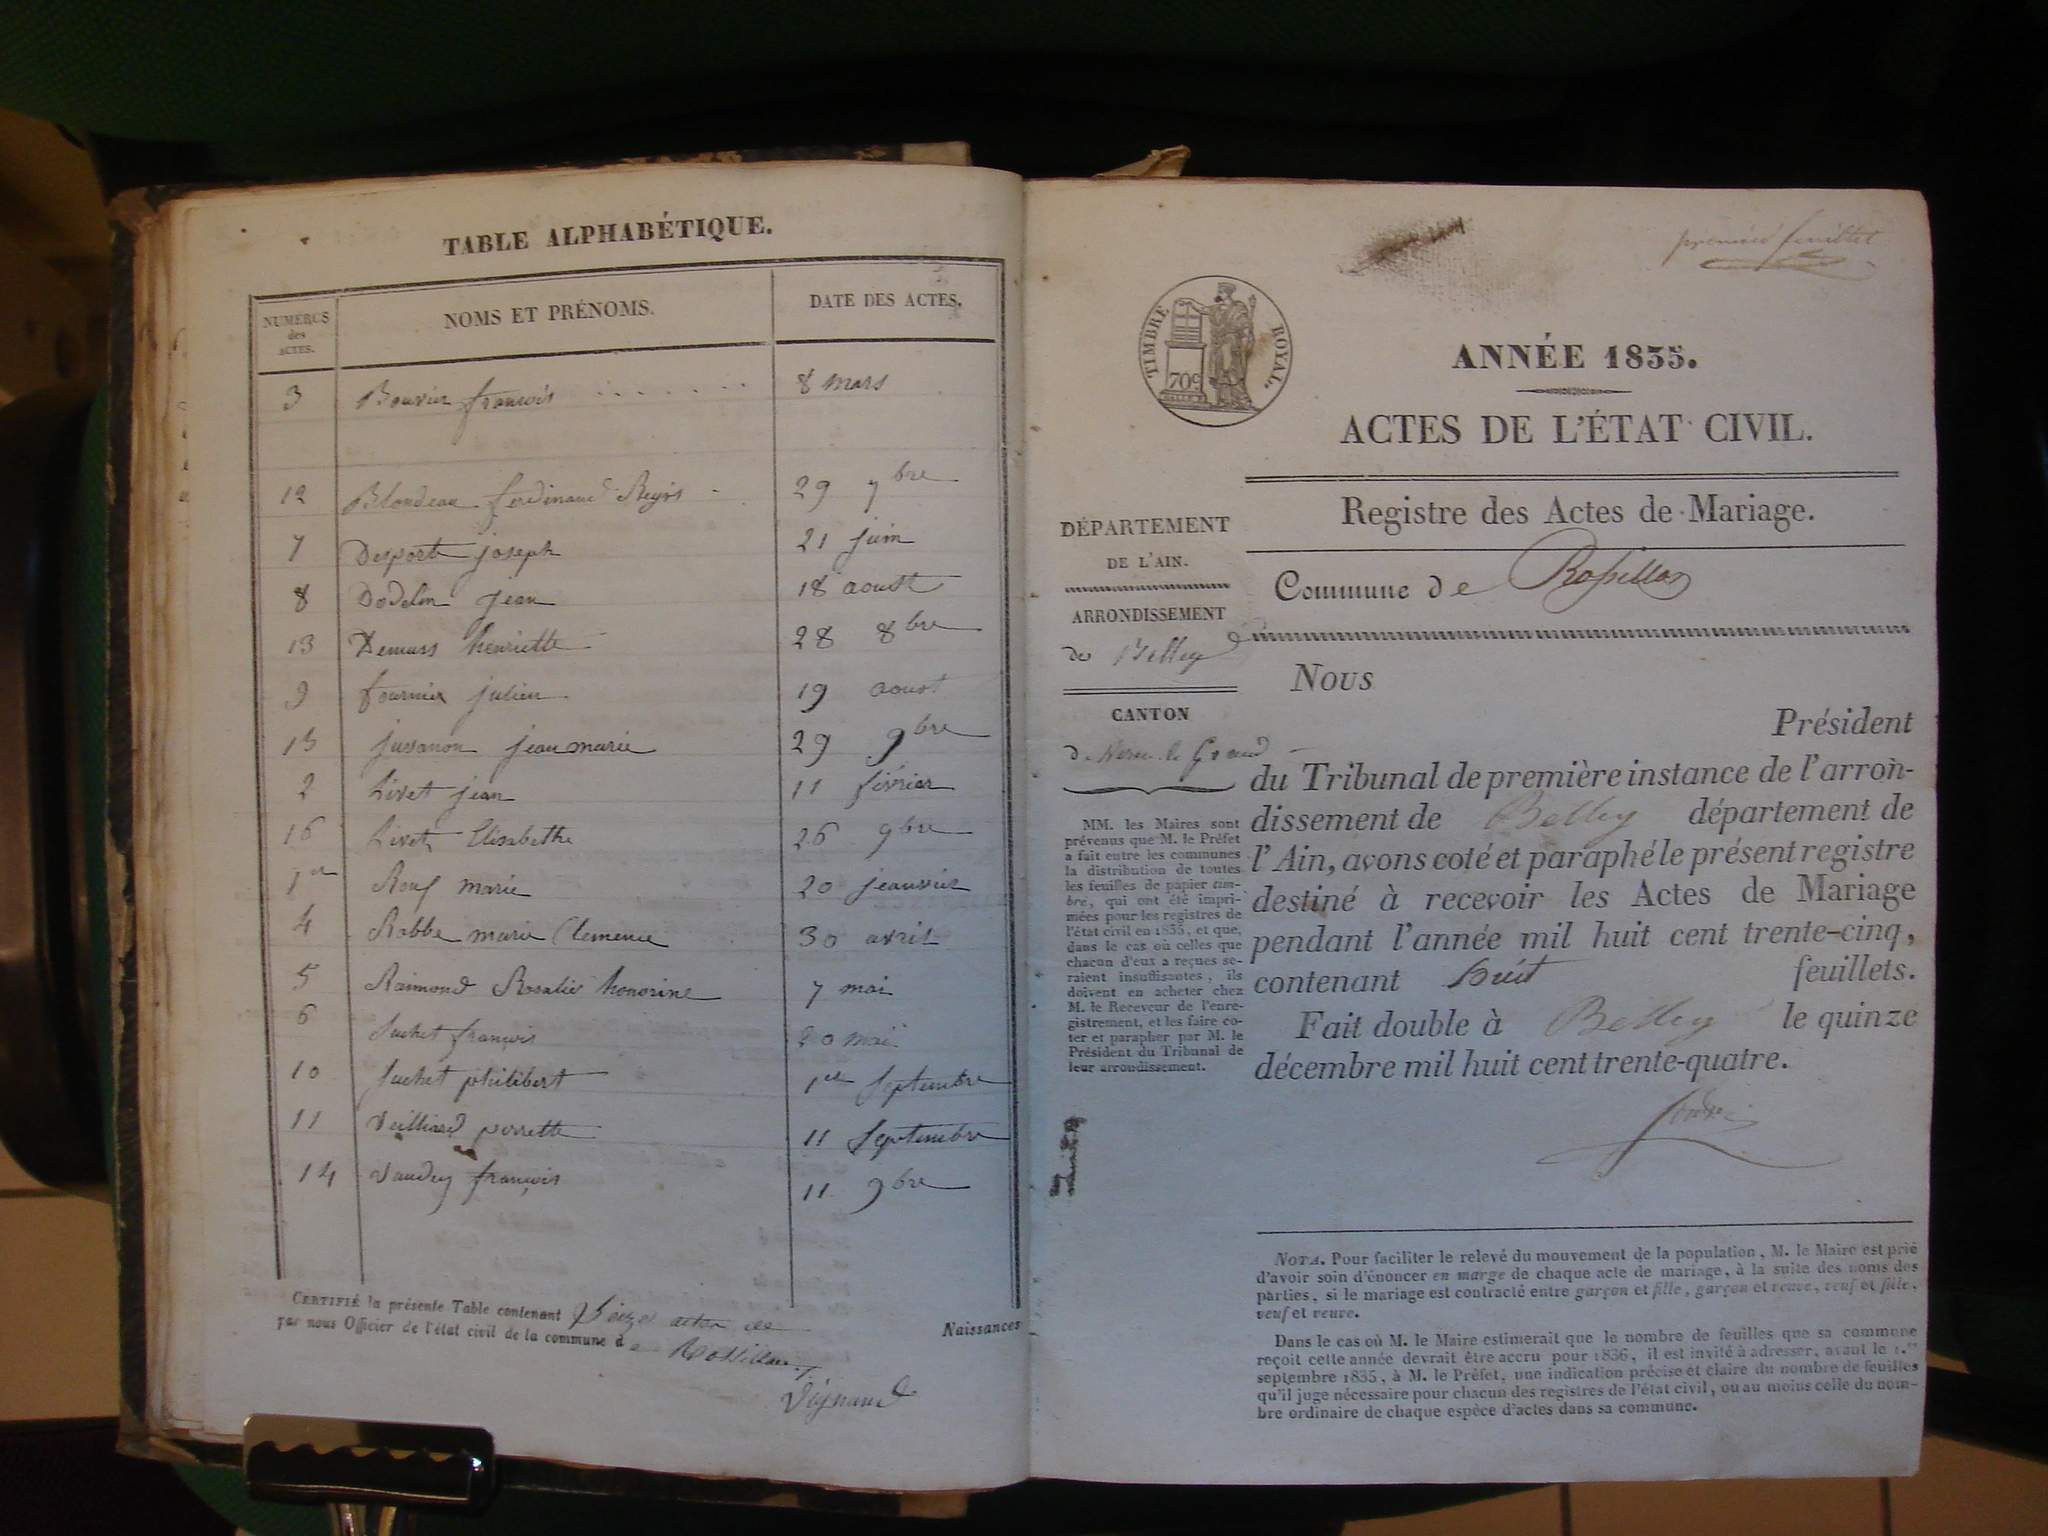 TABLE ALPHABÉTIQUE.
NUMÉROS des ACTES. NOMS ET PRÉNOMS. DATE DES ACTES.
3 Bouvier françois 8 mars
12 Blondeau ferdinand Regis 29 7bre
7 Desporte joseph 21 juin
8 Dodelin jean 18 aoust
13 henriette 28 8bre
9 fournier julien 19 aoust
15 jussanon jean marie 29 9bre
2 Livet jean 11 février
16 Livet Elisabethe 26 9bre
1er marie 20 jeanvier
4 Rabbe marie Clemence 30 avril
5 Raimond Rosalie honorine 7 mai
6 Suchet françois 20 mai
10 Suchet philibert 1er Septembre
11 Veilliard perrette 11 Septembre
14 Vaudey françois 11 9bre
CERTIFIÉ la présente Table contenant Seize actes de Naissances
par nous Officier de l'état civil de la commune de Rossillon.
Vignaud
premier feuillet
TIMBRE ROYAL.
70c
ANNÉE 1835.
ACTES DE L'ÉTAT CIVIL.
Registre des Actes de Mariage.
Commune de Rossillon
DÉPARTEMENT
DE L'AIN.
ARRONDISSEMENT
de Belley
CANTON
de Virieu le Grand
MM. les Maires sont
prévenus que M. le Préfet
a fait entre les communes
la distribution de toutes
les feuilles de papier tim-
bré, qui ont été impri-
mées pour les registres de
l'état civil en 1835, et que,
dans le cas où celles que
chacun d'eux a reçues se-
raient insuffisantes, ils
doivent en acheter chez
M. le Receveur de l'enre-
gistrement, et les faire co-
ter et parapher par M. le
Président du Tribunal de
leur arrondissement.
Nous
Président
du Tribunal de première instance de l'arron-
dissement de Belley département de
l'Ain, avons coté et paraphé le présent registre
destiné à recevoir les Actes de Mariage
pendant l'année mil huit cent trente-cinq,
contenant huit feuillets.
Fait double à Belley le quinze
décembre mil huit cent trente-quatre.
NOTA. Pour faciliter le relevé du mouvement de la population, M. le Maire est prié
d'avoir soin d'énoncer en marge de chaque acte de mariage, à la suite des noms des
parties, si le mariage est contracté entre garçon et fille, garçon et veuve, veuf et fille,
veuf et veuve.
Dans le cas où M. le Maire estimerait que le nombre de feuilles que sa commune
reçoit cette année devrait être accru pour 1836, il est invité à adresser, avant le 1.er
septembre 1835, à M. le Préfet, une indication précise et claire du nombre de feuilles
qu'il juge nécessaire pour chacun des registres de l'état civil, ou au moins celle du nom-
bre ordinaire de chaque espèce d'actes dans sa commune.